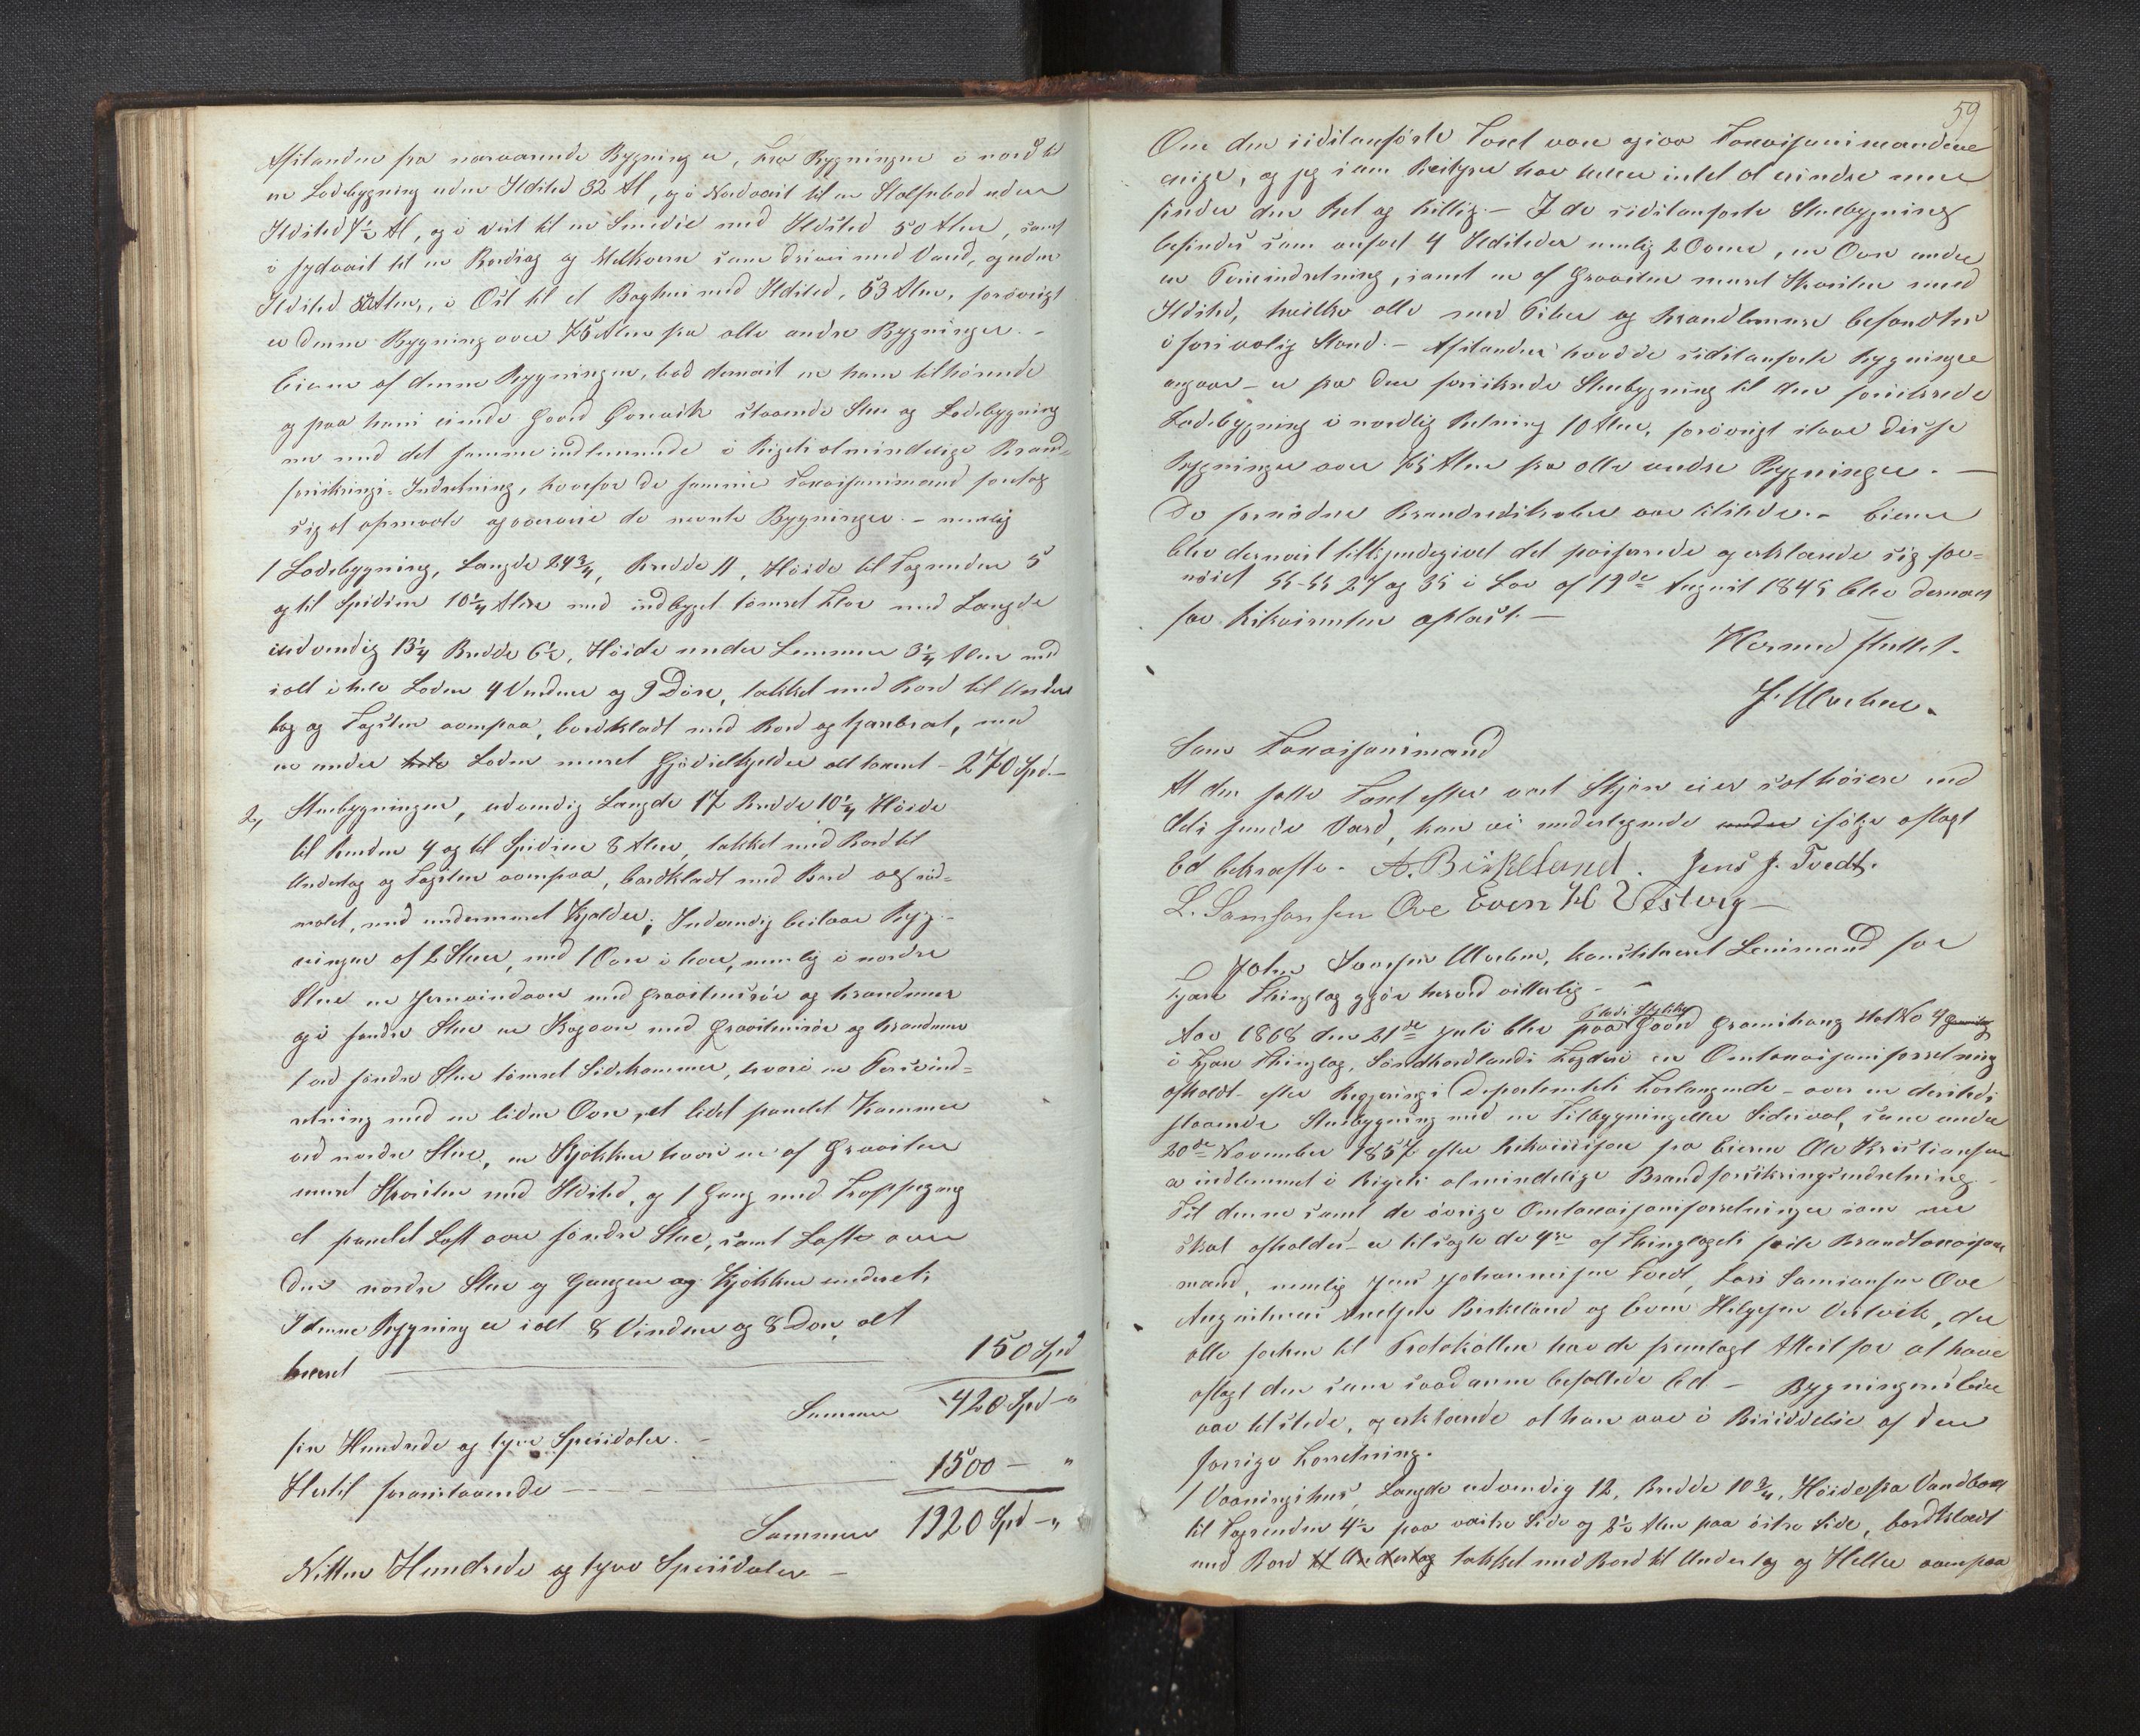 Afstanden fra nærværende Bygning er, fra Bygningen i nord til
en Ladebygning uden Ildsted 32 Al, og i Nordvest til en Stolpebod uden
Ildsted 7½ Al, og i Vest til en Smedie med Ildsted 50 Alen, samt
i sydvest til en Bordsag og Melkværn som drives med Vand, og uden
Ildsted 52 Alen, i Øst til et Baghus med Ildsted, 53 Alen, forøvrigt
er denne Bygning over 75 Alen fra alle andre Bygninger. –
Eieren af denne Bygningen, bad dernæst en ham tilhørende
og paa hans eiende Gaard staaende Stue og Ladebygning
med det samme indlemmede i Rigets almindelige Brand-
forsikrings-Indretning, hvorfor de samme Taxasjonsmænd foretog
sig at opmaale og overveie de nævnte Bygninger. – nemlig
1 Ladebygning, Længde 24¾, Bredde 11, Høide til Tagrenden 5
og til Spidsen 10¼ Alen med indbygget tømret Flor med Længde
indvendig 13¼ Bredde 6½, Høide under Lemmen 3¼ Alen med
i alt i hele Laden 4 Vinduer og 9 Døre, takket med Bord til Under
lag og Tagsten ovenpaa, bordklædt med Bord og tjærebræt, med
en under hele Laden muret Gjødselkjelder alt taxeret – 270 Spd. –
2, Stuebygningen, udvendig Længde 17 Bredde 10¼ Høide
til Renden 4 og til Spidsen 8 Alen, takket med Bord til
Underlag og Tagsten ovenpaa, bordklædt med Bord og rød-
malet, med undermuret Kjelder; Indvendig bestaar Byg-
ningen af 2 Stuer, med 1 Ovn i hver, nemlig i nordre
Stue en Jernvindovn med Graastensrør og brandmur
og i søndre Stue en Kogovn med Graastensrør og brandmur
1 ved søndre Stue tømret Sidekammer, hvori en
retning med en liden Ovn, et lidet panelet Kammer
ved nordre Stue, en Kjøkken hvori en af Graasten
muret Skorsten med Ildsted, og 1 Gang med Trappegang
et panelet Loft over søndre Stue, samt Lofte over
den nordre Stue og Gangen og Kjøkken
I denne Bygning er i alt 8 Vinduer og 8 Døre, alt
taxeret 150 Spd
Summa 420 Spd – "
fire Hundrede og tyve Spesidaler. –
Hertil foranstaaende – 1500 – "
Summa 1920 Spd – "
Nitten Hundrede og tyve Spesidaler –
59
Om den sidstanførte Taxt var ogsaa Taxasjonsmændene
enige, og jeg som Bestyrer har heller intet at erindre men
finder den Ret og billig. – I de sidstanførte Stuebygning
befindes som anført 4 Ildsteder nemlig 2 Ovne, en Ovn under
en indretning, samt en af Graasten muret Skorsten med
Ildsted, hvilke alle med Piber og Brandmure befandtes
i forsvarlig Stand. – Afstanden hvad de sidstanførte Bygninger
angaar – er fra den forsikrede Stuebygning til den forsikrede
Ladebygning i nordlig Retning 10 Alen, forøvrigt staar disse
Bygninger over 75 Alen fra alle andre Bygninger. –
De fornødne Brandredskaber var tilstede. – Eieren
blev dernæst tilkjendegivet det passerede og erklærede sig for-
nøiet §§-§§ 27 og 35 i Lov af 19de August 1845 blev dernæst
for Rekvirenten oplæst. –
Hermed sluttet.
J. Ulvehne.
Som Taxasjonsmænd
At den satte Taxt efter vort Skjøn ei er sat høiere end
dets sande Værd, kan vi undertegnede under ifølge aflagt
Ed bekræfte. A. Birkeland. Jens J. Tvedt.
L. Samsonsen Ove Even H Vestvig –
John Ulvehne, konstitueret Lensmand for
Fjære Thinglag gjør herved vitterlig –
Aar 1868 den 21de Juli blev paa Gaard Gramshaug Mat No 4
i Fjære Thinglag, Søndhordlands Fogderi en Omtaxasjonsforretning
afholdt – efter Regjerings Departementets Forlangende – over en dersteds
staaende Stuebygning med en Tilbygning eller Sideval, som under
20de November 1857 efter Rekvisisjon fra Eieren Ole Kristiansen
er indlemmet i Rigets almindelige Brandforsikringsindretning –
Til denne samt de øvrige Omtaxasjonsforretninger som nu
skal afholdes – er tilsagte de 4re af Thinglagets faste Brandtaxasjons
mænd, nemlig Jens Johannesen Tvedt, Lars Samsonsen Ove
Birkeland og Even Helgesen Vestvik, der
alle forhen til Protokollen har de fremlagt Attest for at have
aflagt den som saadanne befallede Ed – Bygningens Eier
var tilstede, og erklærede at han var i Besiddelse af den
forrige Forretning.
1 Vaaningshus, Længde udvendig 12, Bredde 10¾, Høide fra Vandbord
til Tagrenden 4½ paa vestre Side og 2½ Alen paa østre Side, bordklædt
med Bord til Underlag takket med Bord til Underlag og Heller ovenpaa